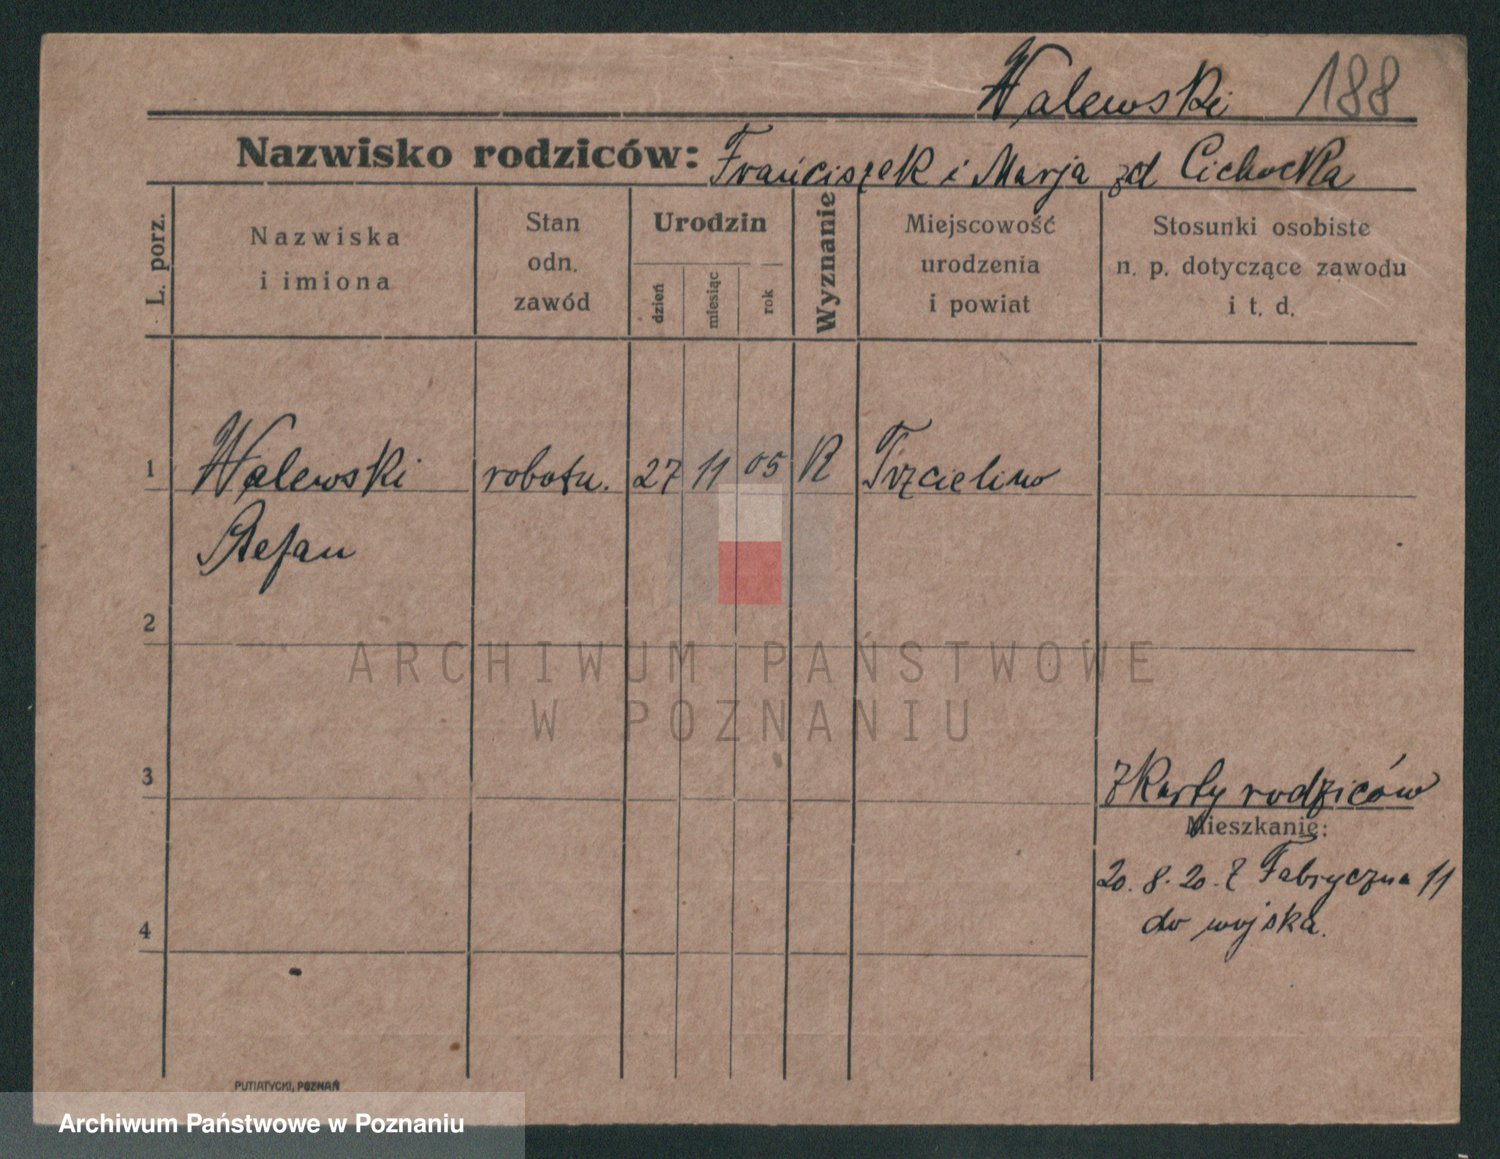 Walewski 188
Nazwisko rodziców: Franciszek i Marja zd Cichocka
L. porz.
Nazwiska
i imiona
Stan
odn.
zawód
Urodzin
dzień
miesiąc
rok
Wyznanie
Miejscowość
urodzenia
i powiat
Stosunki osobiste
n. p. dotyczące zawodu
i t. d.
1 Walewski robotn. 27 11 05 R Trzcielino
Stefan
2
ARCHIWUM PAŃSTWOWE
W POZNANIU
3
Z Karty rodziców
Mieszkanie:
20. 8. 20. Z Fabryczna 11
4
do wojska.
PUTIATYCKI, POZNAŃ
Archiwum Państwowe w Poznaniu